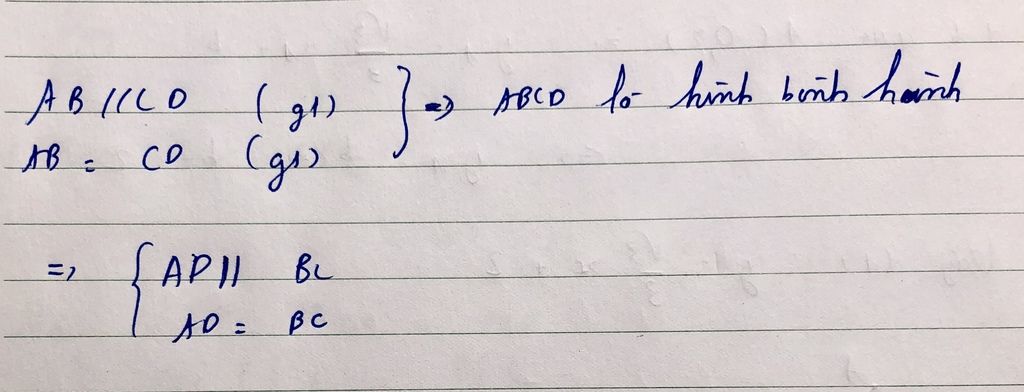 AB // CD (gt) } => ABCD là hình bình hành
AB = CD (gt)
=> { AD // BC
AD = BC